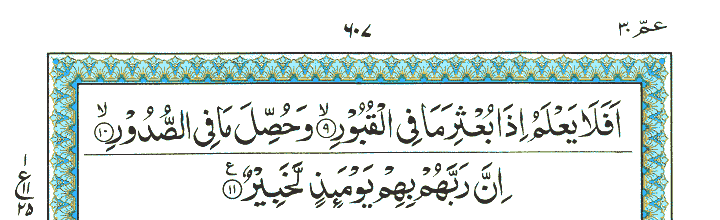 عمّ ٣٠
٦٠٧
اَفَلَا يَعْلَمُ اِذَا بُعْثِرَ مَا فِي الْقُبُوْرِ ۙ‏﴿۹﴾ وَحُصِّلَ مَا فِي الصُّدُوْرِ ۙ‏﴿۱۰﴾
اِنَّ رَبَّهُمْ بِهِمْ يَوْمَئِذٍ لَّخَبِيْرٌ ﴿۱۱﴾ ع
١
ع
١١
٢٥